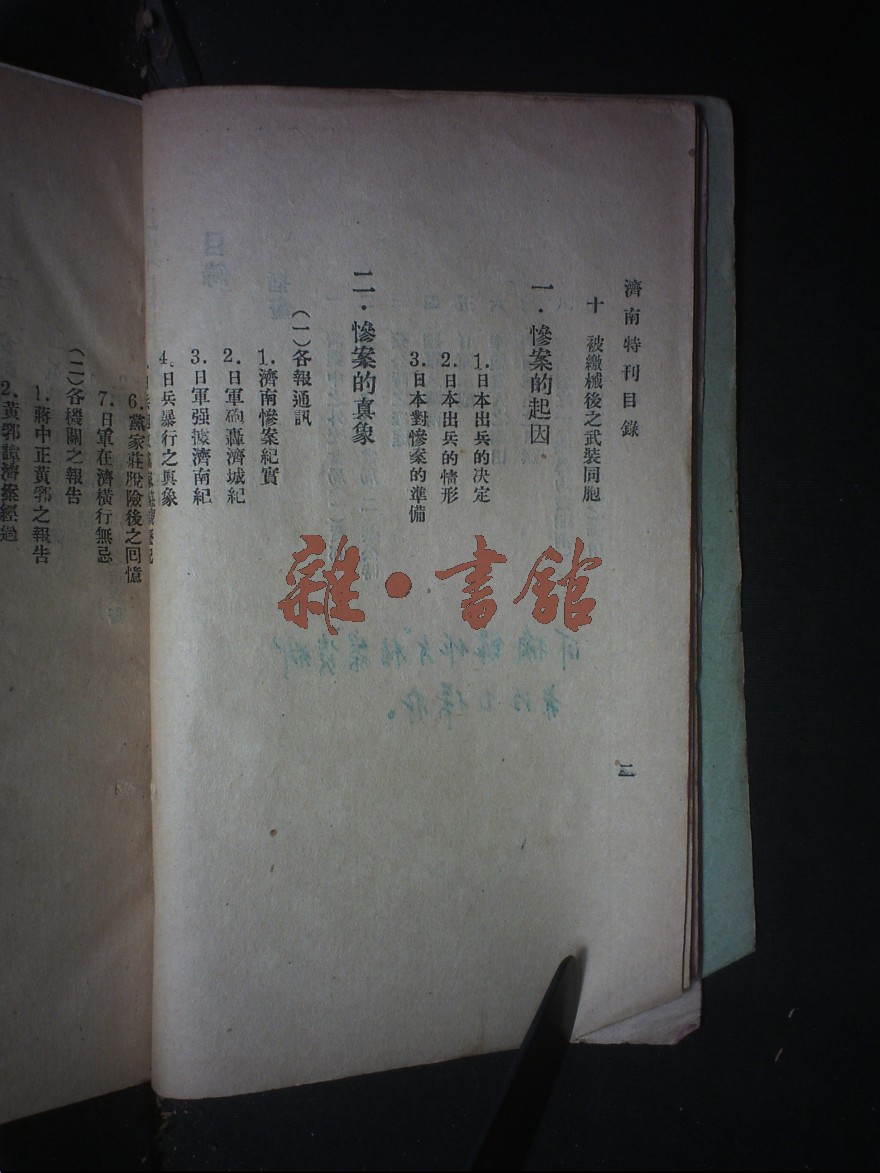 濟南特刊目錄
二
十 被繳械後之武裝同胞
一．慘案的起因．
1.日本出兵的决定
2.日本出兵的情形
3.日本對慘案的準備
二．慘案的真象
(一)各報通訊
1.濟南慘案紀實
2.日軍砲轟濟城紀
3.日軍强據濟南紀
4.日兵暴行之真象
6.黨家莊脫險後之回憶
7.日軍在濟橫行無忌
(二)各機關之報告
1.蔣中正黃郛之報告
2.黃郛譚濟案經過
雜·書館